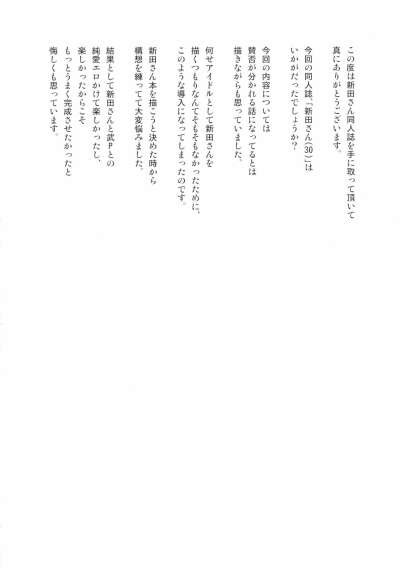 この度は新田さん同人誌を手に取って頂いて
真にありがとうございます。
今回の同人誌「新田さん(30)」は
いかがだったでしょうか?
今回の内容については
賛否が分かれる話になってるとは
描きながらも思っていました。
何せアイドルとして新田さんを
描くつもりなんてそもそもなかったために、
このような導入になってしまったのです。
新田さん本を描こうと決めた時から
構想を練ってて大変悩みました。
結果として新田さんと武Pとの
純愛エロかけて楽しかったし、
楽しかったからこそ
もっとうまく完成させたかったと
悔しくも思っています。